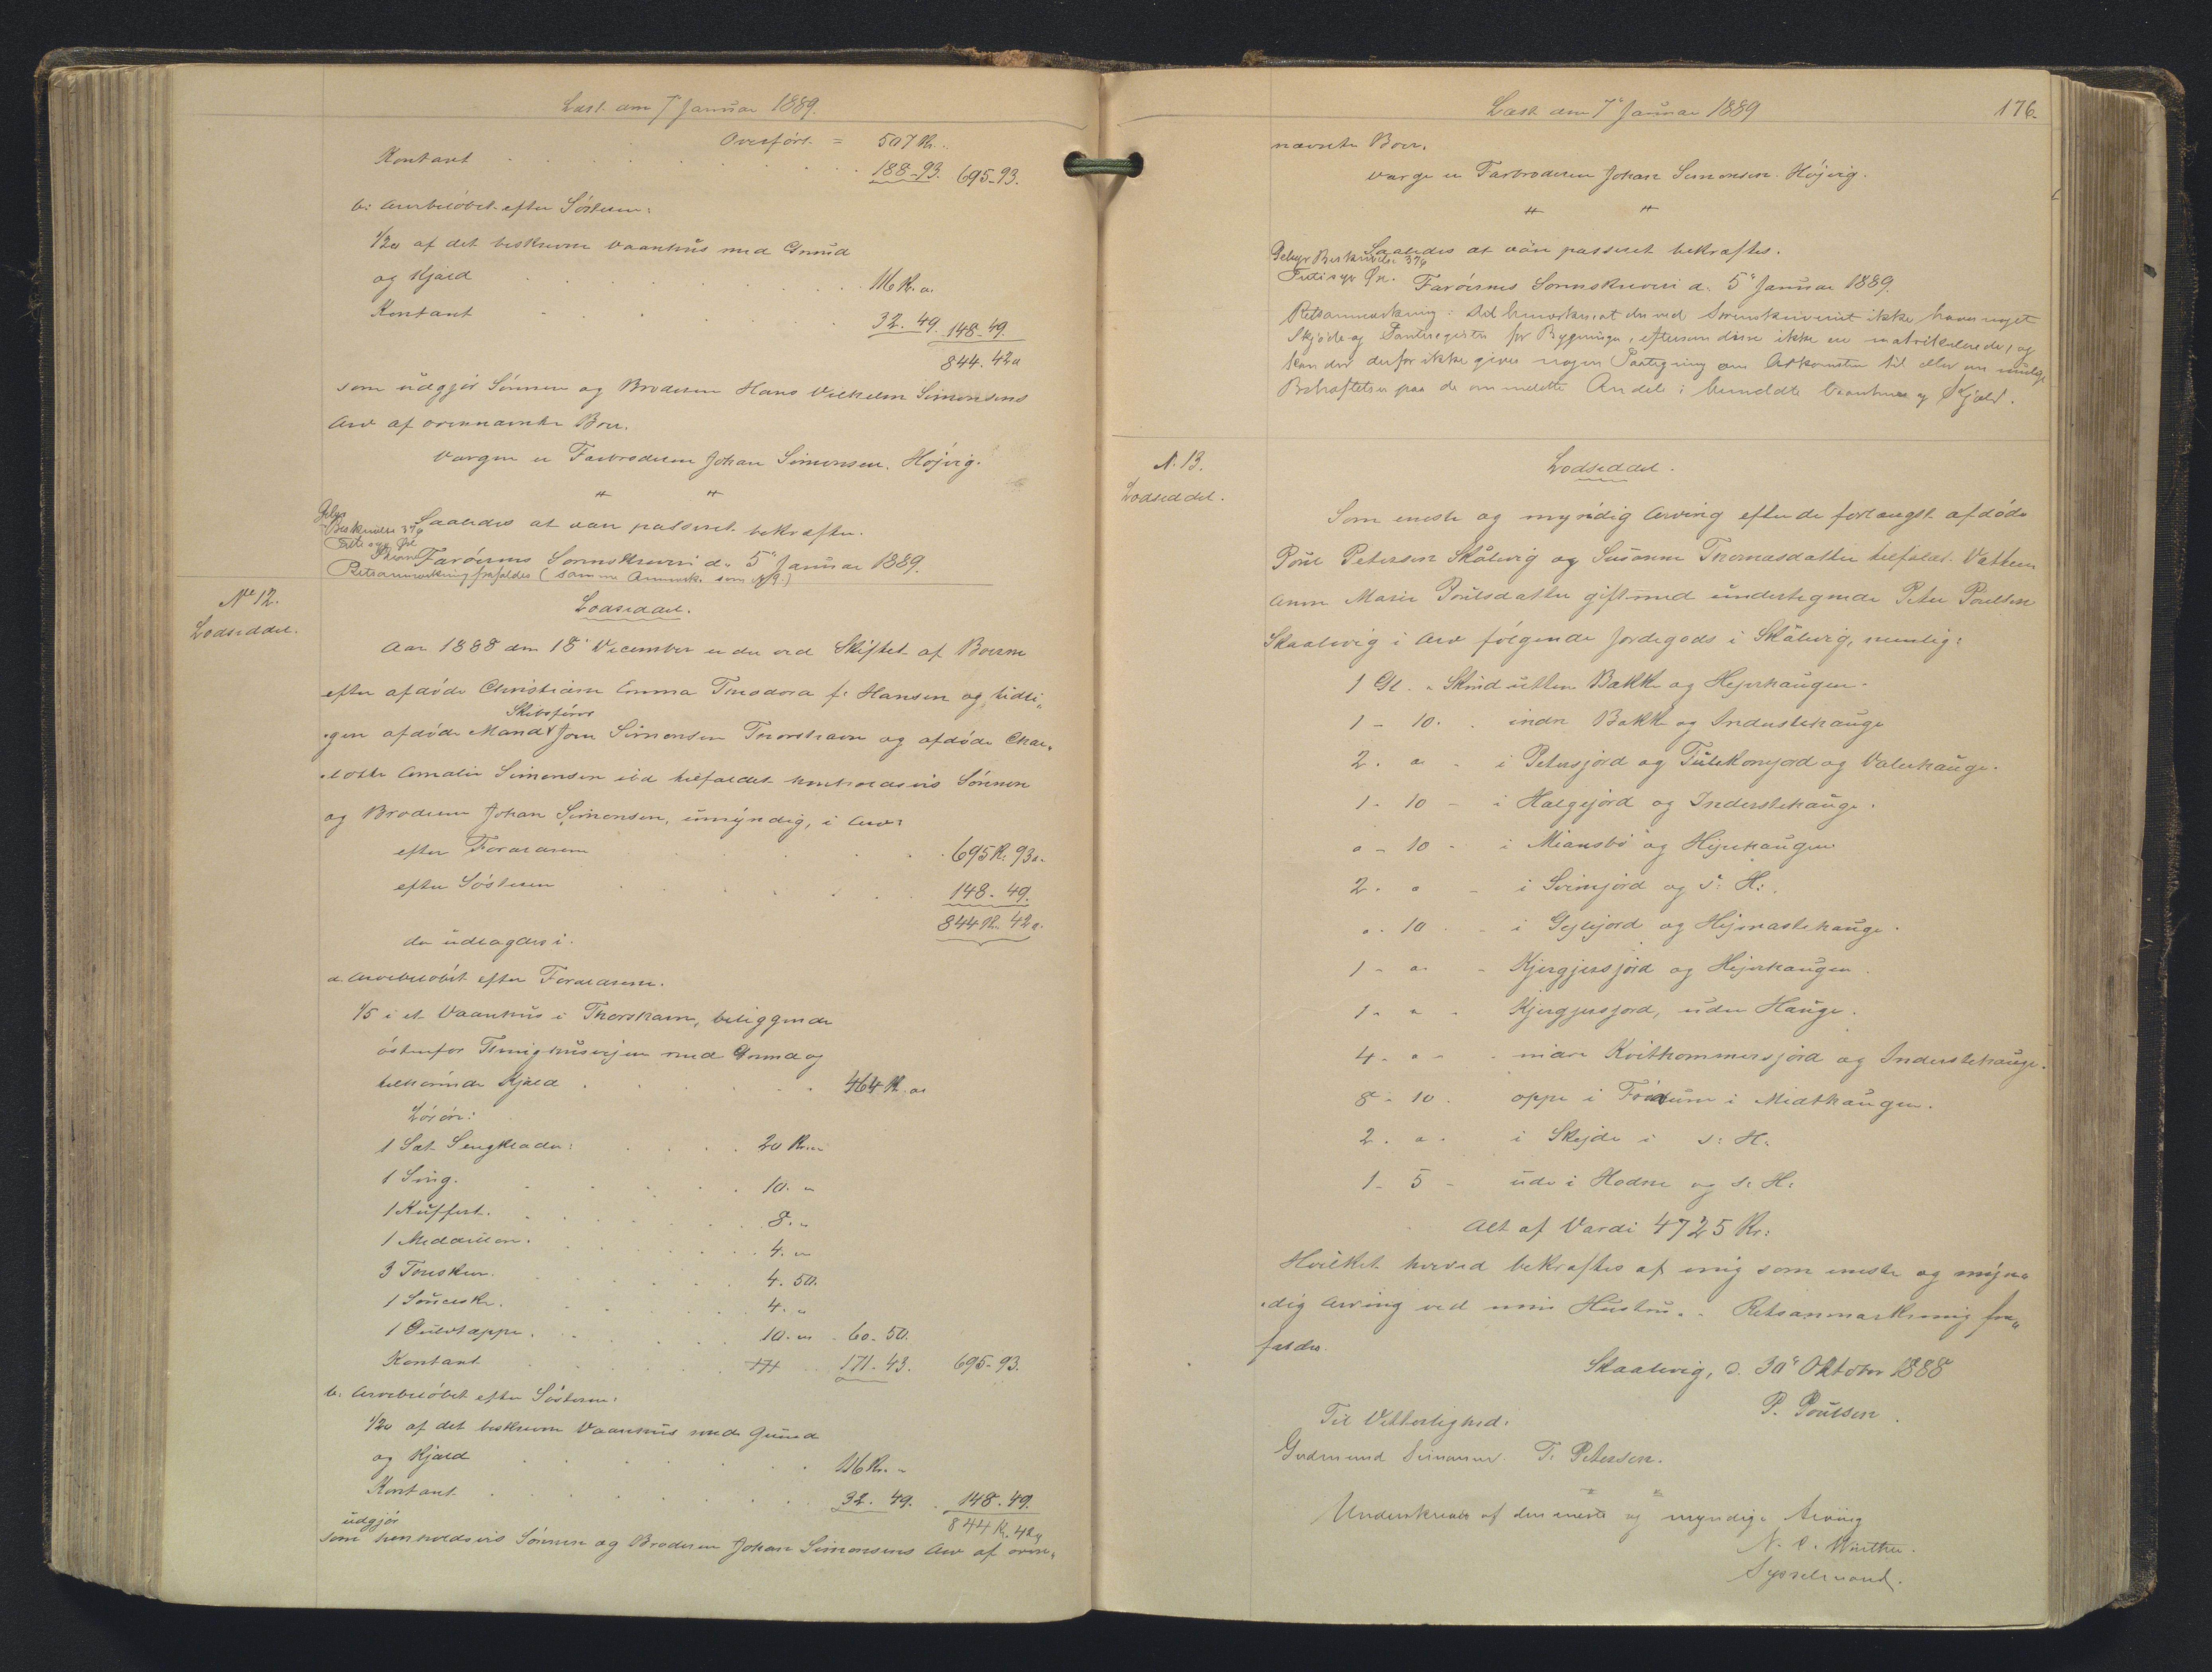 Læst den 7' Januar 1889.
Overført = 507 Kr.
Kontant 188-93. 695-93.
b: Arvebeløbet efter Søsteren:
1/20 af det beskrevne Vaanhus med Grund
og Kjæld 116 Kr. a.
Kontant 32. 49. 148. 49.
844. 42 a
som udgjør Sønnen og Broderen Hans Vilhelm Simonsens
Arv af ovennævnte Boer.
Vargen er Farbroderen Johan Simonsen, Højvig.
Saaledes at være passeret bekræftes.
Gebyr
Beskrivelse 37/6
Færøernes Sorenskriveri d. 5" Januar 1889.
Retsanmærkning frafaldes (samme Anmærk. som N 9.)
No 12.
Lodseddel.
Lodseddel.
Aar 1888 den 18' December er der ved Skiftet af Boerne
efter afdøde Christiane Emma Theodora f. Hansen og tidli„
„gere afdøde Mand Skibsfører Jom Simonsen Thorshavn og afdøde Char„
„lotte Amalie Simonsen ibd tilfaldet henholdsvis Sønnen
og Broderen Johan Simonsen, umyndig, i Arv:
efter Forældrene 695 Kr. 93 a.
efter Søsteren 148. 49.
844 Kr. 42 a.
der udlagdes i.
a. Arvebeløbet efter Forældrene.
1/5 i et Vaanhus i Thorshavn, beliggende
østenfor Thinghusvejen med Grund og
tilhørende Kjæld 464 Kr. a
Løsøre:
1 Sæt Sengklæder: 20 Kr. a
1 Seng. 10. "
1 Kuffert. 8. "
1 Medaillon. 4. "
3 Theskeer. 4. 50.
1 Sauceske. 4. "
1 Gulvtæppe. 10. " 60. 50.
Kontant 171. 43. 695-93.
b: Arvebeløbet efter Søsteren:
1/20 af det beskrevne Vaanhus med Grund
og Kjæld 116 Kr. -
Kontant 32. 49. 148. 49.
844 Kr. 42 a
som udgjør henholdsvis Sønnen og Broderen Johan Simonsens Arv af oven„
Læst den 7" Januar 1889 176.
nævnte Boer.
Varge er Farbroderen Johan Simonsen. Højvig.
Saaledes at være passeret bekræftes.
Gebyr Beskrivelse 37/6
Fritisyv Øre. Færøernes Sorenskriveri d. 5" Januar 1889.
Retsanmærkning: Det bemærkes, at der ved Sorenskriveriet ikke haves noget
Skjøde og Panteregister for Bygninger, eftersom disse ikke ere matrikulerede, og
kan der derfor ikke gives nogen Paategning om Adkomsten til eller om mulige
Behæftelser paa de ommeldte Andele i bemeldte Vaanhus og Kjæld.
N. 13.
Lodseddel.
Lodseddel.
Som eneste og myndig Arving efter de forlængst afdøde
Poul Petersen Skålevig og Susanne Thomasdatter tilfaldt Datteren
Anne Marie Poulsdatter gift med undertegnede Peter Poulsen
Skaalevig i Arv følgende Jordegods i Skålevig, nemlig:
1 Gl. " Skind utten Bakke og Hejrehaugen.
1 - 10. . indre Bakke og Inderstehauge
2. " - i Petersjord og Tulekonejord og Valerhauge.
1 - 10 - i Halgejord og Inderstehauge.
" - 10 - i Miansbø og Hejrehaugen
2. " - i Svinsjord og s: H:.
". 10. - i Gejlejord og Hejmastehauge.
1 - " - Kjergjersjord og Hejrehaugen.
1 - " - Kjergjersjord, uden Hauge.
4. " - - nidre Kvithommersjord og Inderstehauge.
8 - 10. oppe i i Midthaugen.
2. ". i Skejde i s: H:
1 - 5 - ude i Hodne og s: H:
Alt af Værdi 4725 Kr:
Hvilket herved bekræftes af mig som eneste og myn„
„dig Arving ved min Hustru. - Retsanmærkning fra„
faldes.
Skaalevig, d. 30" Oktober 1888
P. Poulsen.
Til Vitterlighed:
Gudmund Simonsen. T. Petersen.
Underskrevet af den eneste og myndige Arving
N. C. Winther.
Sysselmand.